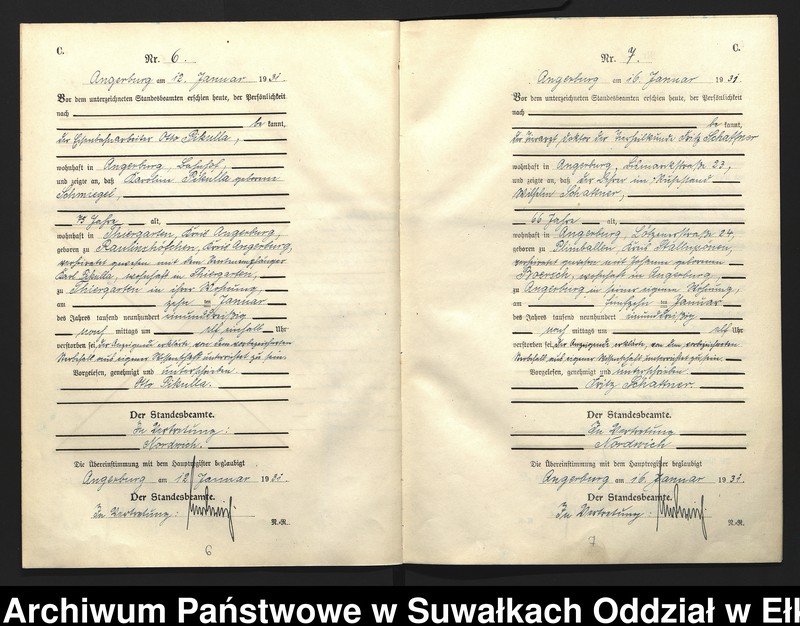 C.
Nr. 6.
Angerburg am 12. Januar 1931.
Vor dem unterzeichneten Standesbeamten erschien heute, der Persönlichkeit
nach
be kannt,
der Eisenbahnarbeiter Otto Pikulla,
wohnhaft in Angerburg Bahnhof,
und zeigte an, daß Karoline Pikulla geborene
Schmiegel,
75 Jahre alt,
wohnhaft in Thiergarten, Kreis Angerburg,
geboren zu Kreis Angerburg,
verheiratet gewesen mit dem
Karl Pikulla, wohnhaft in Thiergarten,
zu Thiergarten in ihrer Wohnung
am zehn ten Januar
des Jahres tausend neunhundert einunddreißig
nach mittags um elf einhalb Uhr
verstorben sei. Der Anzeigende erklärte, von dem vorbezeichneten
Sterbefall aus eigener Wissenschaft unterrichtet zu sein.
Vorgelesen, genehmigt und unterschrieben
Otto Pikulla.
Der Standesbeamte.
In Vertretung:
Nordwich.
Die Übereinstimmung mit dem Hauptregister beglaubigt
Angerburg am 12. Januar 1931.
Der Standesbeamte.
In Vertretung:
N.-R.
6
C.
Nr. 7.
Angerburg am 16. Januar 1931
Vor dem unterzeichneten Standesbeamten erschien heute, der Persönlichkeit
nach
be kannt,
der Tierarzt Doktor der Tierheilkunde Fritz Schattner
wohnhaft in Angerburg, Bismarkstraße 23,
und zeigte an, daß der Lehrer im Ruhestand
Wilhelm Schattner,
66 Jahre alt,
wohnhaft in Angerburg, Lötzenerstraße 24,
geboren zu Plimballen Kreis Stallupönen,
verheiratet gewesen mit Johanne geborenen
wohnhaft in Angerburg,
zu Angerburg in seiner eigenen Wohnung,
am fünfzehn ten Januar
des Jahres tausend neunhundert einunddreißig
nach mittags um elf Uhr
verstorben sei. Der Anzeigende erklärte, von dem vorbezeichneten
Sterbefall aus eigener Wissenschaft unterrichtet zu sein.
Vorgelesen, genehmigt und unterschrieben
Fritz Schattner
Der Standesbeamte.
In Vertretung
Nordwich
Die Übereinstimmung mit dem Hauptregister beglaubigt
Angerburg am 16. Januar 1931.
Der Standesbeamte.
In Vertretung:
N.-R.
7
Archiwum Państwowe w Suwałkach Oddział w Ełk